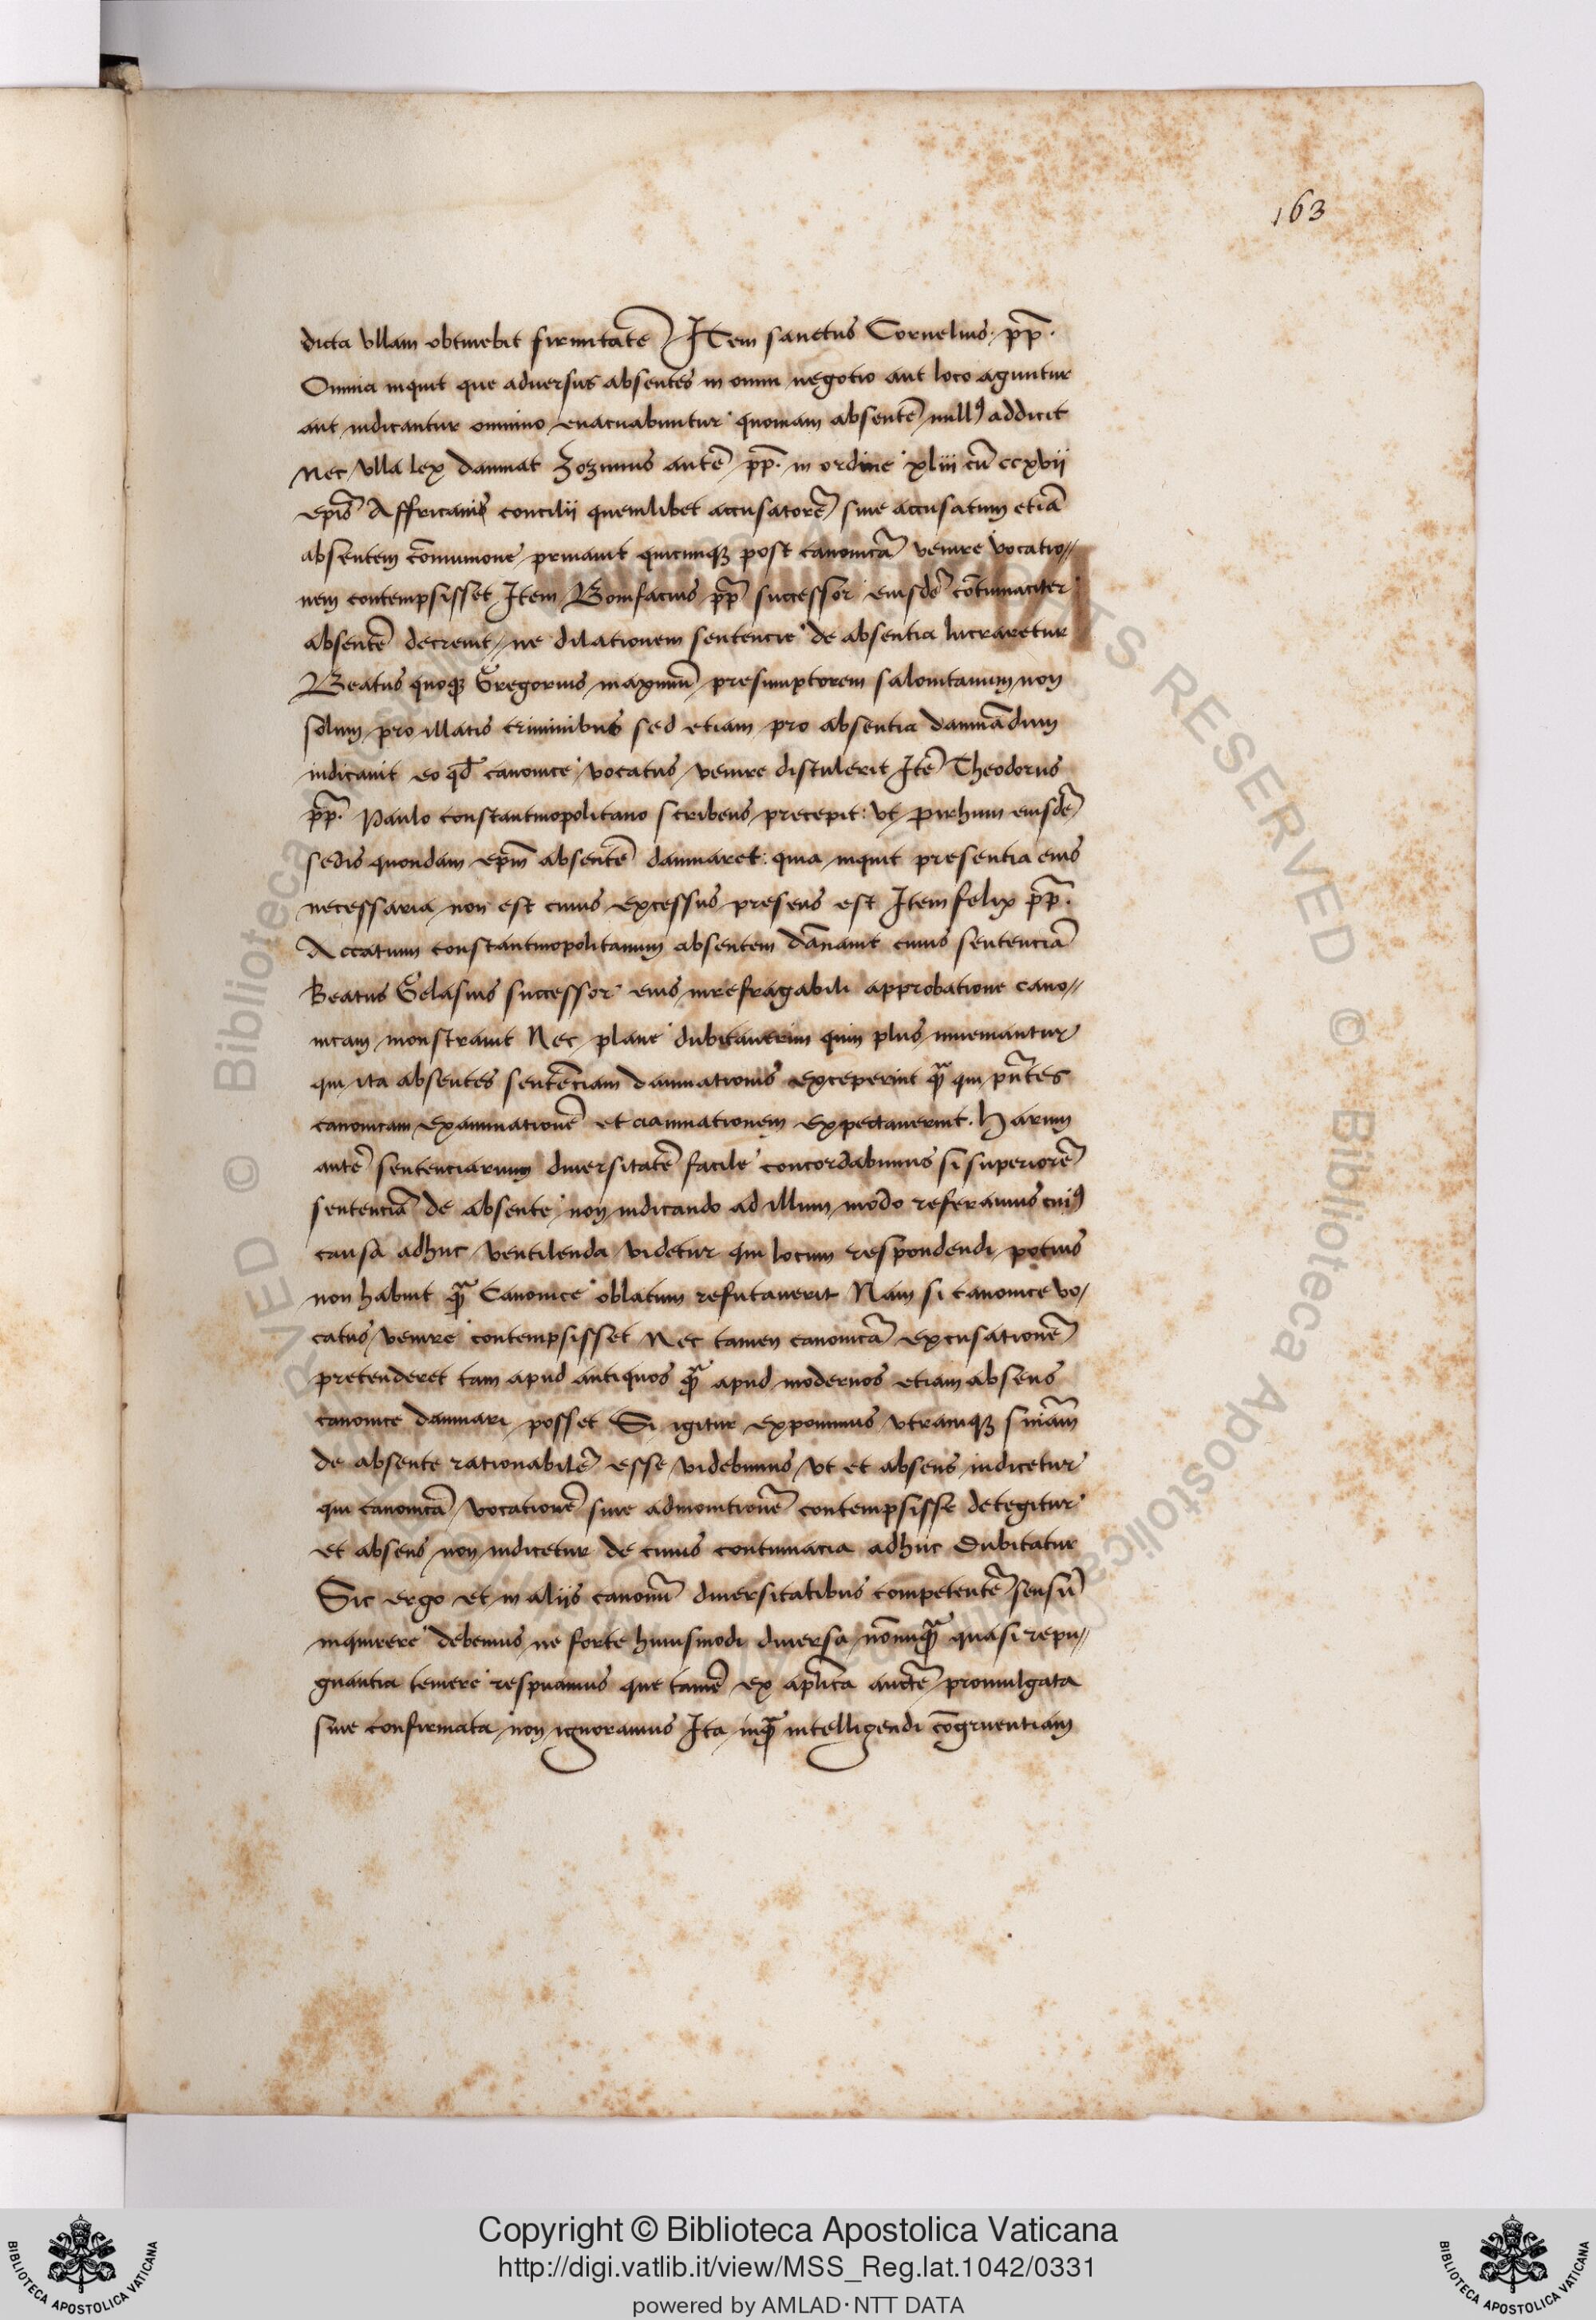 163
dicta vllam obtinebit firmitatē Item sanctus Cornelius pp̄.
Omnia inquit que aduersus absentes in omni negotio aut loco aguntur
aut iudicantur omnino euacuabuntur quoniam absentē null9 addicit
Nec vlla lex damnat Zozimus autē pp̄. in ordine xliii cū ccxvii
ep̄is Affricanis concilii quemlibet accusatorē siue accusatum etiā
absentem cōmunione priuauit quicunqꝫ post canonicā venire vocatio//
nem contempsisset Item Bonifacius pp̄ successor eiusdē cōtumaciter
absentē decreuit ne dilationem sentencie de absentia lucraretur
Beatus quoqꝫ Gregorius maximū presumptorem salonitanum non
solum pro illatis criminibus sed etiam pro absentia damnādum
iudicauit eo qd̄ canonice vocatus venire distulerit Itē Theodorus
pp̄. Paulo constantinopolitano scribens precepit: vt Pirhum eiusdē
sedis quondam ep̄m absentē damnaret: quia inquit presentia eius
necessaria non est cuius excessus presens est Item felix pp̄.
Accatium constantinopolitanum absentem dānauit cuius sentenciā
Beatus Gelasius successor eius irrefragabili approbatione cano//
nicam monstrauit Nec plane dubitauerim quin plus inueniantur
qui ita absentes sentēciam damnationis exceperint qua̅ qui pn̄tes
canonicam examinationē et damnationem expectauerint. Harum
autē sentenciarum diuersitatē facile concordabimus si superiorē
sentenciā de absente non iudicando ad illum modo referamus cui9
causa adhuc ventilenda videtur qui locum respondendi potius
non habuit qua̅ Canonice oblatum refutauerit Nam si canonice vo/
catus venire contempsisset Nec tamen canonicā excusationē
pretenderet tam apud antiquos qua̅ apud modernos etiam absens
canonice damnari posset Si igitur exponimus vtramqꝫ sn̄iam
de absente rationabilē esse videbimus vt et absens iudicetur
qui canonicā vocationē siue admonitionē contempsisse detegitur
et absens non iudicetur de cuius contumacia adhuc dubitatur
Sic ergo et in aliis canonū diuersitatibus competentē sensū
inquirere debemus ne forte huiusmodi diuersa nōnuqua̅ quasi repu//
gnantia temere respuamus que tamē ex ap̄lica auct̄e promulgata
siue confirmata non ignoramus Ita inqua̅ intelligendi cōgruentiam
© Biblioteca Apostolica Vaticana
RIGHTS RESERVED
Copyright © Biblioteca Apostolica Vaticana
http://digi.vatlib.it/view/MSS_Reg.lat.1042/0331
powered by AMLAD·NTT DATA
BIBLIOTECA APOSTOLICA VATICANA
BIBLIOTECA APOSTOLICA VATICANA